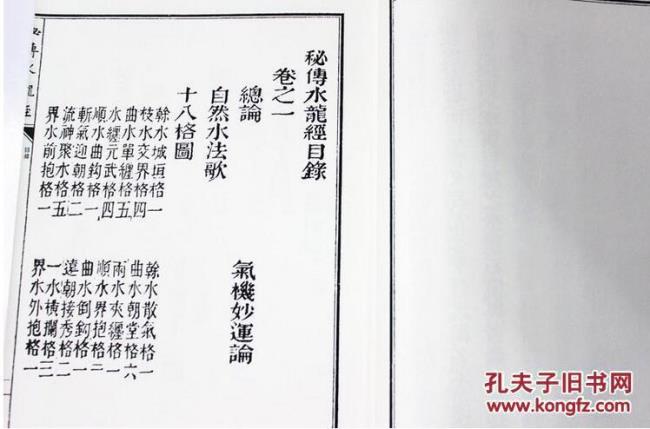 秘傳水龍經目錄
卷之一
總論
氣機妙運論
自然水法歌
十八格圖
榦水城垣格一
榦水散氣格一
枝水交界格四
曲水朝堂格六
曲水單纏格五
兩水夾纏格一
水纏元武格四
順水界抱格二
順水曲鈎格一
曲水倒鈎格一
斬氣迎朝格二
遠朝接秀格二
流神聚水格五
一水橫攔格三
界水前抱格一
界水外抱格一
秘傳水龍經
目錄
孔夫子旧书网
www.kongfz.com